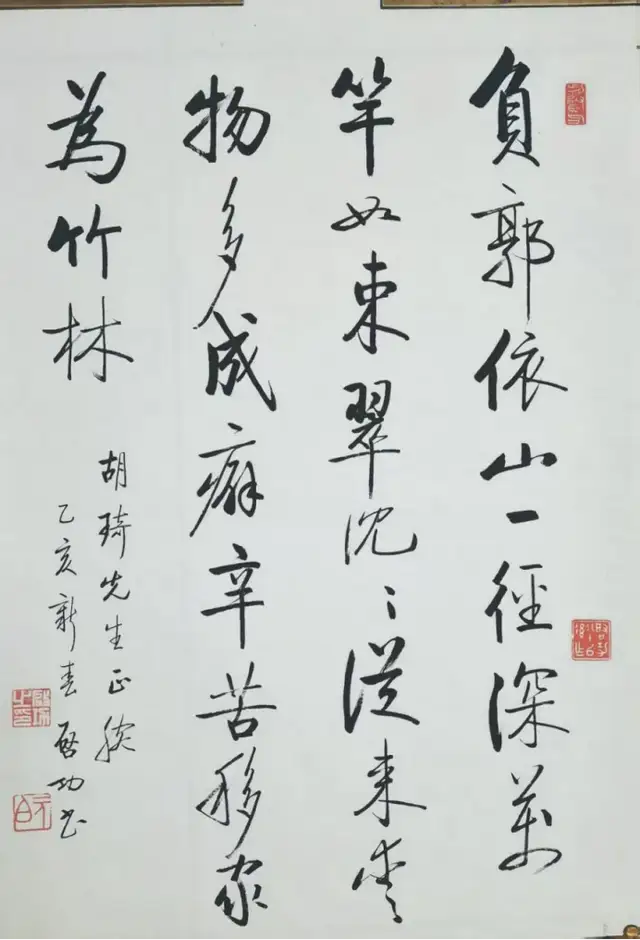 負郭依山一徑深萬
竿如束翠沈〻從来愛
物多成癖辛苦移家
為竹林
胡琦先生正腕
乙亥新春 啓功書